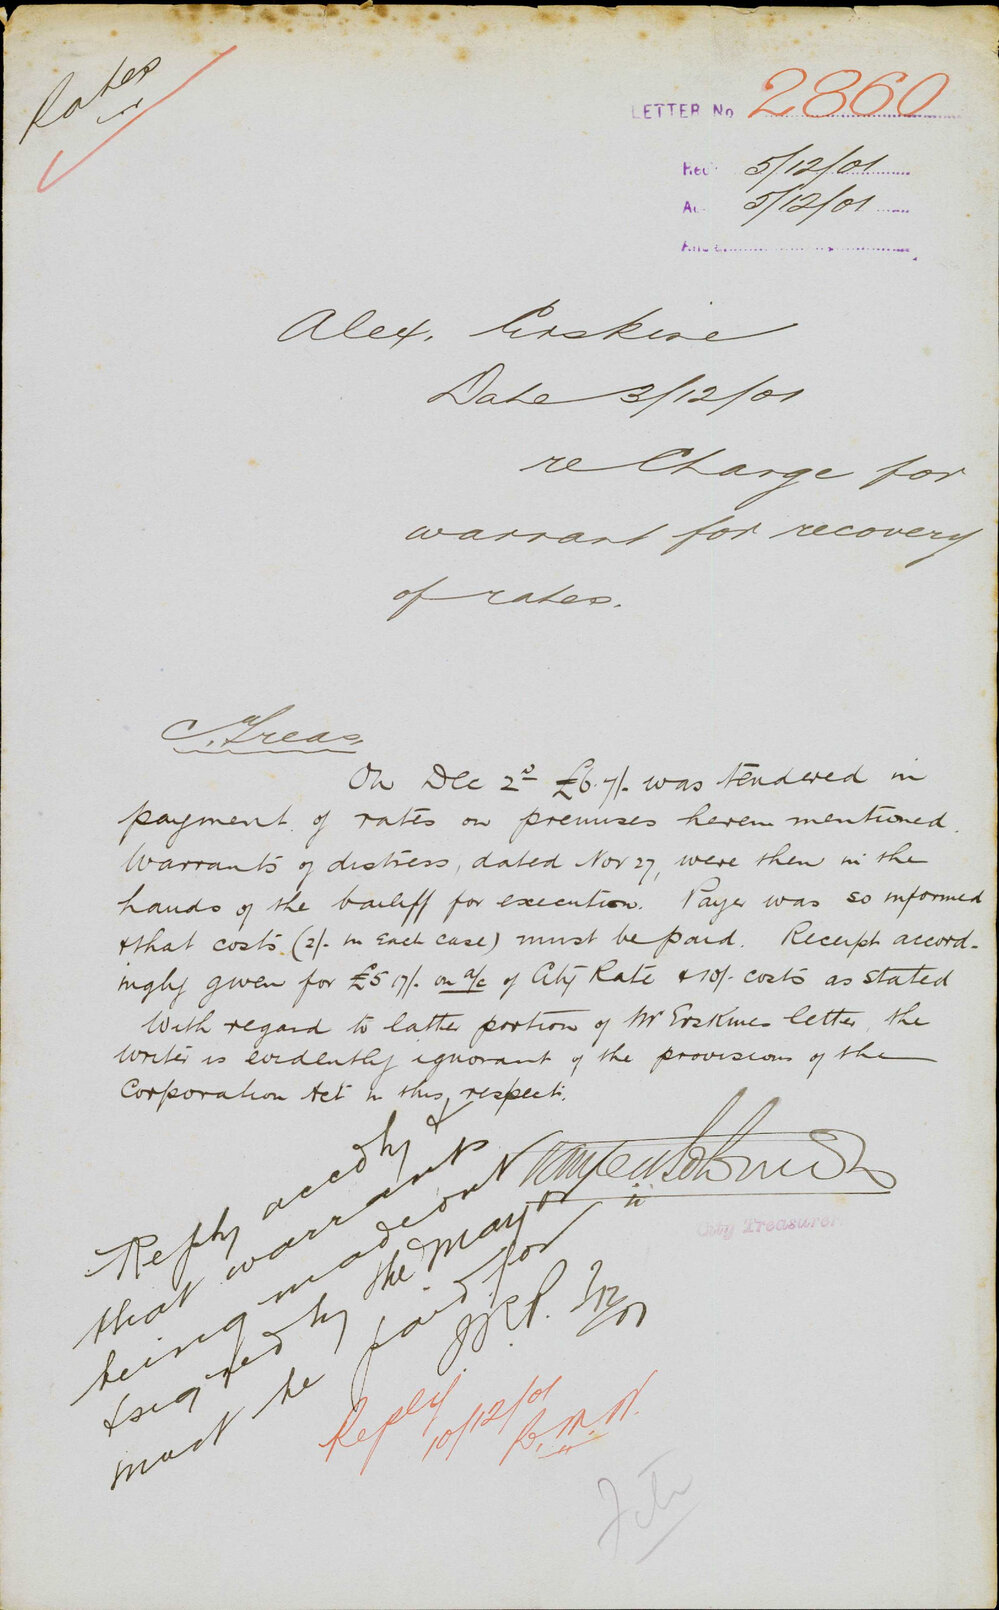 Rates
LETTER No 2860
Rec 5/12/01
Ac 5/12/01
Ans
Alex. Erskine
Date 3/12/01
re Charge for
warrant for recovery
of rates.
C. Treas.
On Dec 2nd £6.7/- was tendered in
payment of rates on premises herein mentioned.
Warrants of distress, dated Nov 27, were then in the
hands of the bailiff for execution. Payer was so informed
& that costs (2/- in each case) must be paid. Receipt accord-
ingly given for £5.17/- on a/c of City Rate & 10/- costs as stated
With regard to latter portion of Mr Erskines letter, the
writer is evidently ignorant of the provisions of the
Corporation Act in this respect.
City Treasurer
Reply accdly &
that warrants
being made out
& signed by the Mayor
must be paid for
Reply
10/12/01
File